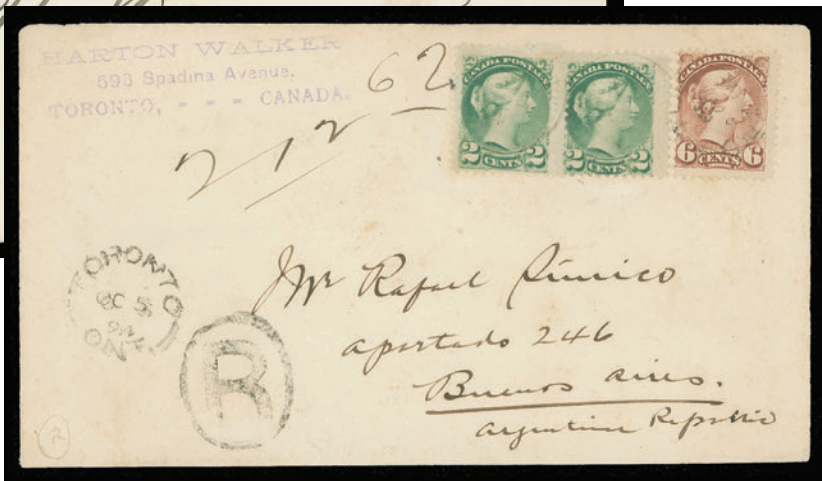 HARTON WALKER
593 Spadina Avenue.
TORONTO, - - - CANADA.
62.
212
CANADA POSTAGE
2 CENTS 2
CANADA POSTAGE
2 CENTS 2
CANADA POSTAGE
6 CENTS 6
TORONTO
OC 5
ONT
R
Mr Rafael
apartado 246
Buenos Aires.
Argentine Republic
R